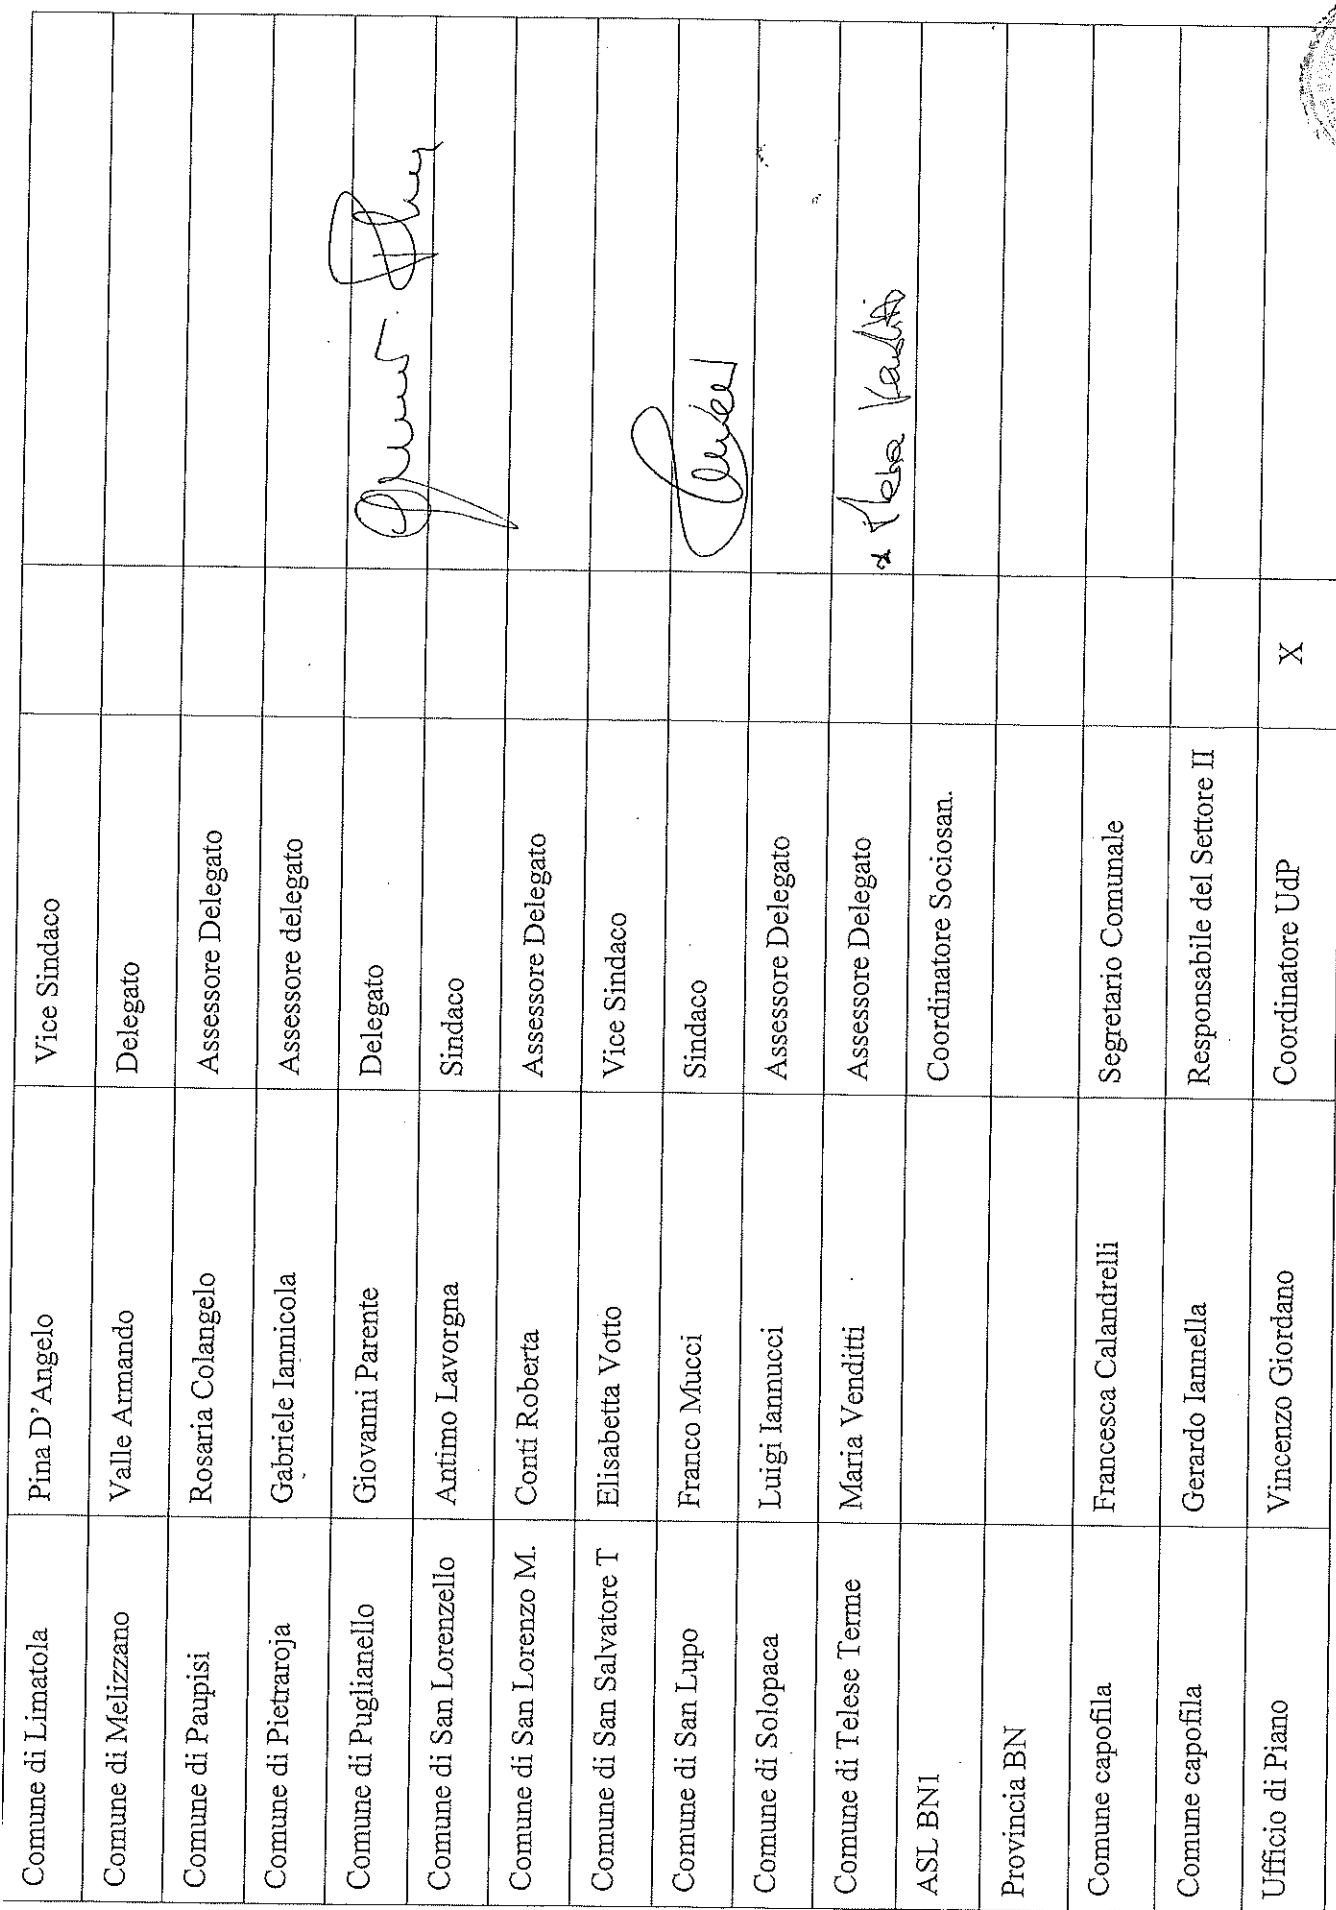 Comune di Limatola Pina D'Angelo Vice Sindaco
Comune di Melizzano Valle Armando Delegato
Comune di Paupisi Rosaria Colangelo Assessore Delegato
Comune di Pietraroja Gabriele Iannicola Assessore delegato
Comune di Puglianello Giovanni Parente Delegato
Comune di San Lorenzello Antimo Lavorgna Sindaco
Comune di San Lorenzo M. Conti Roberta Assessore Delegato
Comune di San Salvatore T Elisabetta Votto Vice Sindaco
Comune di San Lupo Franco Mucci Sindaco
Comune di Solopaca Luigi Iannucci Assessore Delegato
Comune di Telese Terme Maria Venditti Assessore Delegato
ASL BN1 Coordinatore Sociosan.
Provincia BN
Comune capofila Francesca Calandrelli Segretario Comunale
Comune capofila Gerardo Iannella Responsabile del Settore II
Ufficio di Piano Vincenzo Giordano Coordinatore UdP X